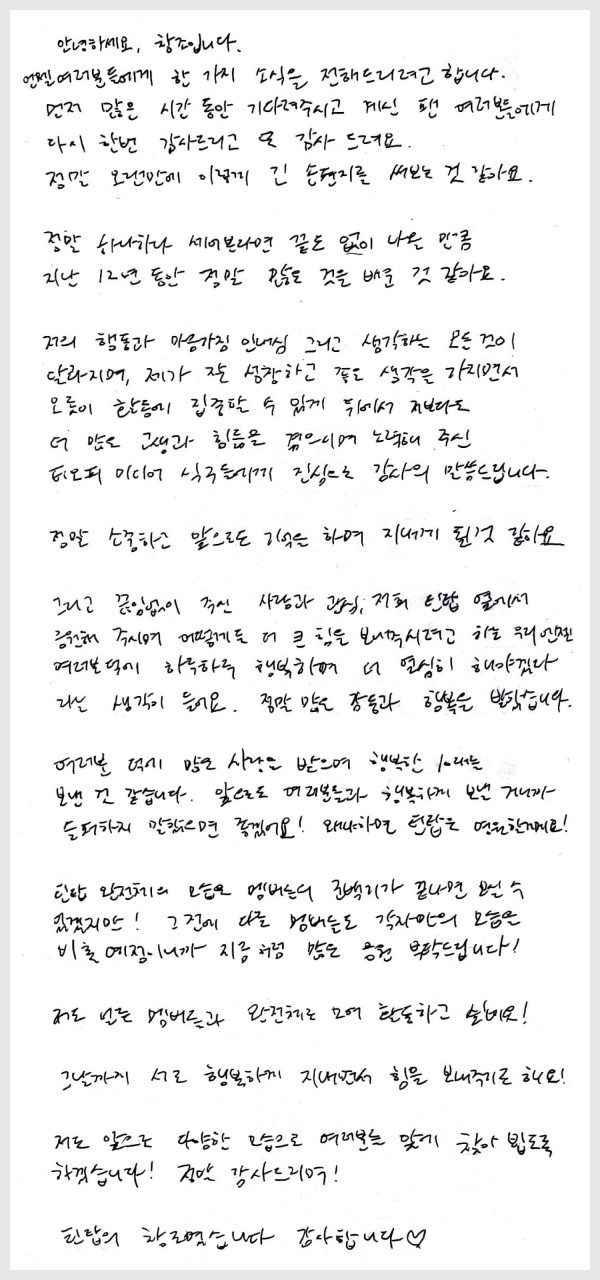 안녕하세요, 창조입니다.
엔젤여러분들에게 한 가지 소식을 전해드리려고 합니다.
먼저 많은 시간 동안 기다려주시고 계신 팬 여러분들에게
다시 한번 감사드리고 또 감사 드려요.
정말 오랜만에 이렇게 긴 손편지를 써보는 것 같아요.
정말 하나하나 세어본다면 끝도 없이 나올 만큼
지난 12년 동안 정말 많은 것을 배운 것 같아요.
저의 행동과 마음가짐 인내심 그리고 생각하는 모든 것이
달라지며, 제가 잘 성장하고 좋은 생각을 가지면서
오롯이 활동에 집중할 수 있게 뒤에서 저보다도
더 많은 고생과 힘듦을 겪으시며 노력해 주신
티오피 미디어 식구들에게 진심으로 감사의 말씀드립니다.
정말 소중하고 앞으로도 기억을 하며 지내게 될것 같아요
그리고 끊임없이 주신 사랑과 관심, 저희 틴탑 옆에서
응원해 주시며 어떻게든 더 큰 힘을 보내주시려고 하는 우리 엔젤
여러분 덕에 하루하루 행복하며 더 열심히 해야겠다
라는 생각이 들어요. 정말 많은 감동과 행복을 받았습니다.
여러분 덕에 많은 사랑을 받으며 행복한 10대를
보낸 것 같습니다. 앞으로도 여러분들과 행복하게 보낼 거니까
슬퍼하지 말았으면 좋겠어요! 왜냐하면 틴탑은 영원할꺼예요!
틴탑 완전체의 모습은 멤버들의 군백기가 끝나면 보실 수
있겠지만! 그 전에 다른 멤버들도 각자만의 모습을
비출 예정이니까 지금처럼 많은 응원 부탁드립니다!
저도 얼른 멤버들과 완전체로 모여 활동하고 싶네요!
그날까지 서로 행복하게 지내면서 힘을 보내주기로 해요!
저도 앞으로 다양한 모습으로 여러분들 앞에 찾아 뵙도록
하겠습니다! 정말 감사드리며!
틴탑의 창조였습니다 감사합니다♡